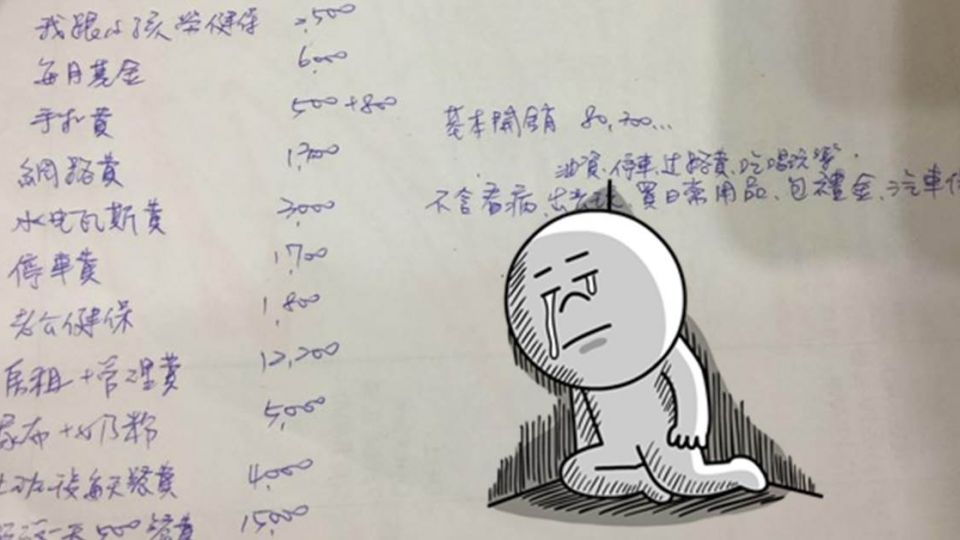 我跟小孩勞健保 2,500
每月基金 6,000
手机費 500+800
網路費 1,700
水电瓦斯費 3,000
停車費 1,700
老公健保 1,800
房租+管理費 12,200
尿布+奶粉 5,000
後每天 費 4,000
一天500 費 15,000
基本開銷 80,700...
油資、停車、过路費、吃喝玩樂.
不含看病、出去玩、買日常用品、包禮金、汽車